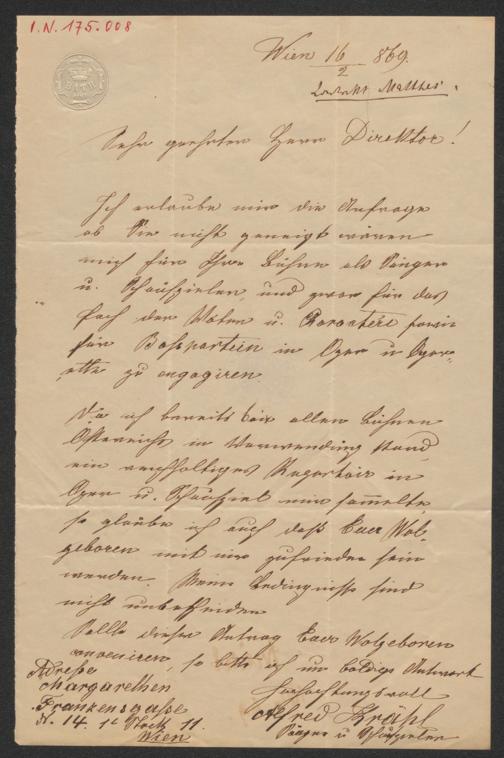 I.N. 175.008
BATH
Wien 16/2 869.
Sehr geehrter Herr Direktor!
Ich erlaube mir die Anfrage
ob Sie nicht geneigt wären
mich für Ihre Bühne als Sänger
u. Schauspieler, und zwar für das
Fach der Väter u. Charactere sowie
für Baßpartein in Oper u Oper-
ette zu engagiren.
Da ich bereits bei allen Bühnen
Österreichs in Verwendung stand,
ein reichhaltiges Repertoir in
Oper u. Schauspiel mir sammelte,
so glaube ich auch daß Euer Wol-
geboren mit mir zufrieden sein
werden. Meine Bedingnisse sind
nicht unbescheiden
Sollte dieser Antrag Euer Wolgeboren
conveniren, so bitte ich um baldige Antwort
Hochachtungsvoll
Alfred Krähl
Sänger u Schauspieler
Adresse
Margarethen
Frankensgaße
N. 14. 1t Stock 11.
Wien